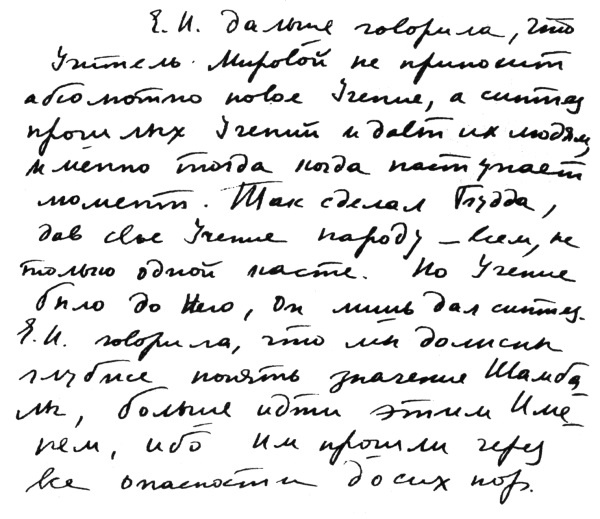 Е.И. дальше говорила, что
Учитель Мировой не приносит
абсолютно новое Учение, а синтез
прошлых Учений и дает их людям,
именно тогда когда наступает
момент. Так сделал Будда,
дав свое Учение народу – всем, не
только одной касте. Но Учение
было до Него, Он лишь дал синтез.
Е.И. говорила, что мы должны
глубже понять значение Шамба-
лы, больше идти этим Име-
нем, ибо им прошли через
все опасности до сих пор.